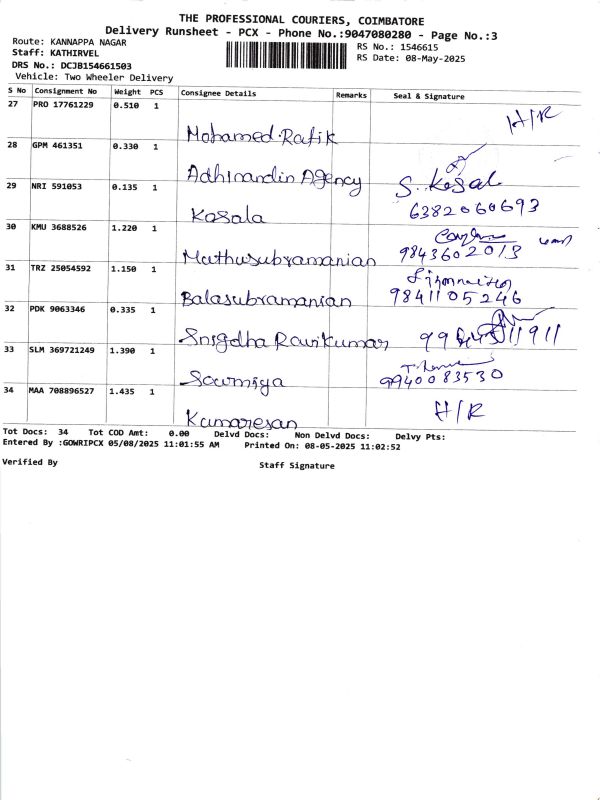 THE PROFESSIONAL COURIERS, COIMBATORE
Delivery Runsheet - PCX - Phone No.:9047080280 - Page No.:3
Route: KANNAPPA NAGAR
RS No.: 1546615
Staff: KATHIRVEL
RS Date: 08-May-2025
DRS No.: DCJB154661503
Vehicle: Two Wheeler Delivery
S No Consignment No Weight PCS Consignee Details Remarks Seal & Signature
27 PRO 17761229 0.510 1
Mohamed.Rafik H/R
28 GPM 461351 0.330 1
Adhinandin Agency
29 NRI 591053 0.135 1 S. Kosala
Kosala 6382060693
30 KMU 3688526 1.220 1
Muthusubramanian 9843602013
31 TRZ 25054592 1.150 1
Balasubramanian 9841105246
32 PDK 9063346 0.335 1
Snigdha Ravikumar
33 SLM 369721249 1.390 1
Sowmiya 9940083530
34 MAA 708896527 1.435 1
Kumaresan H/R
Tot Docs: 34 Tot COD Amt: 0.00 Delvd Docs: Non Delvd Docs: Delvy Pts:
Entered By :GOWRIPCX 05/08/2025 11:01:55 AM Printed On: 08-05-2025 11:02:52
Verified By Staff Signature